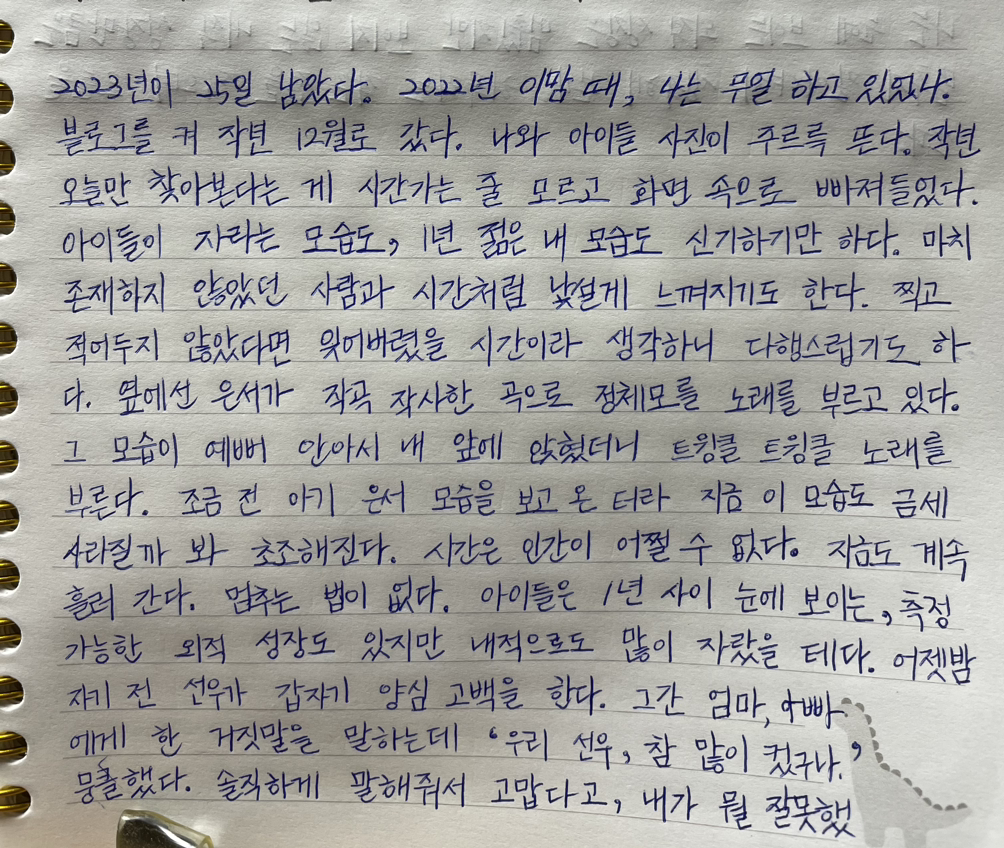 2023년이 25일 남았다. 2022년 이맘 때, 나는 무얼 하고 있었나.
블로그를 켜 작년 12월로 갔다. 나와 아이들 사진이 주르륵 뜬다. 작년
오늘만 찾아본다는 게 시간가는 줄 모르고 화면 속으로 빠져들었다.
아이들이 자라는 모습도, 1년 젊은 내 모습도 신기하기만 하다. 마치
존재하지 않았던 사람과 시간처럼 낯설게 느껴지기도 한다. 찍고
적어두지 않았다면 잊어버렸을 시간이라 생각하니 다행스럽기도 하
다. 옆에선 은서가 작곡 작사한 곡으로 정체모를 노래를 부르고 있다.
그 모습이 예뻐 안아서 내 앞에 앉혔더니 트윙클 트윙클 노래를
부른다. 조금 전 아기 은서 모습을 보고 온 터라 지금 이 모습도 금세
사라질까 봐 초조해진다. 시간은 인간이 어쩔 수 없다. 지금도 계속
흘러 간다. 멈추는 법이 없다. 아이들은 1년 사이 눈에 보이는, 측정
가능한 외적 성장도 있지만 내적으로도 많이 자랐을 테다. 어젯밤
자기 전 선우가 갑자기 양심 고백을 한다. 그간 엄마, 아빠
에게 한 거짓말을 말하는데 '우리 선우, 참 많이 컸구나.'
뭉클했다. 솔직하게 말해줘서 고맙다고, 내가 뭘 잘못했